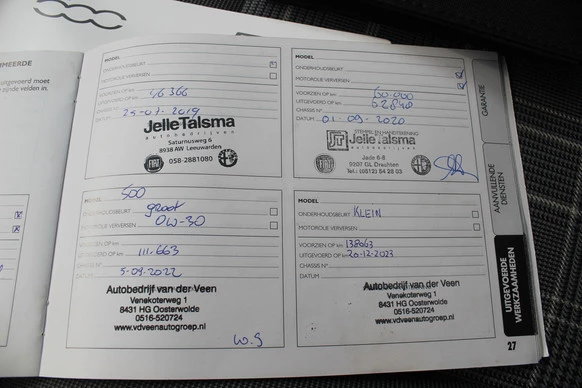 500
MEERDE
uitgevoerd moet
zijnde velden in.
MODEL
ONDERHOUDSBEURT
MOTOROLIE VERVERSEN
VOORZIEN OP km
UITGEVOERD OP km 46366
DATUM 25-07-2019
JelleTalsma
autobedrijven
Saturnusweg 6
8938 AW Leeuwarden
FIAT 058-2881080
MODEL
ONDERHOUDSBEURT
MOTOROLIE VERVERSEN
VOORZIEN OP km 60.000
UITGEVOERD OP km 62840
CHASSIS N°
DATUM 01-09-2020
STEMPEL EN HANDTEKENING
JT JelleTalsma
autobedrijven
Jade 6-8
9207 GL Drachten
FIAT Tel.: (0512) 54 28 03
MODEL 500
ONDERHOUDSBEURT groot
MOTOROLIE VERVERSEN 0W-30
VOORZIEN OP km
UITGEVOERD OP km 111.663
CHASSIS N°
DATUM 5-09-2022
Autobedrijf van der Veen
Venekoterweg 1
8431 HG Oosterwolde
0516-520724
www.vdveenautogroep.nl
W.S
MODEL
ONDERHOUDSBEURT KLEIN
MOTOROLIE VERVERSEN
VOORZIEN OP km 138663
UITGEVOERD OP km 20-12-2023
CHASSIS N°
DATUM
Autobedrijf van der Veen
Venekoterweg 1
8431 HG Oosterwolde
0516-520724
www.vdveenautogroep.nl
GARANTIE
AANVULLENDE
DIENSTEN
UITGEVOERDE
WERKZAAMHEDEN
27